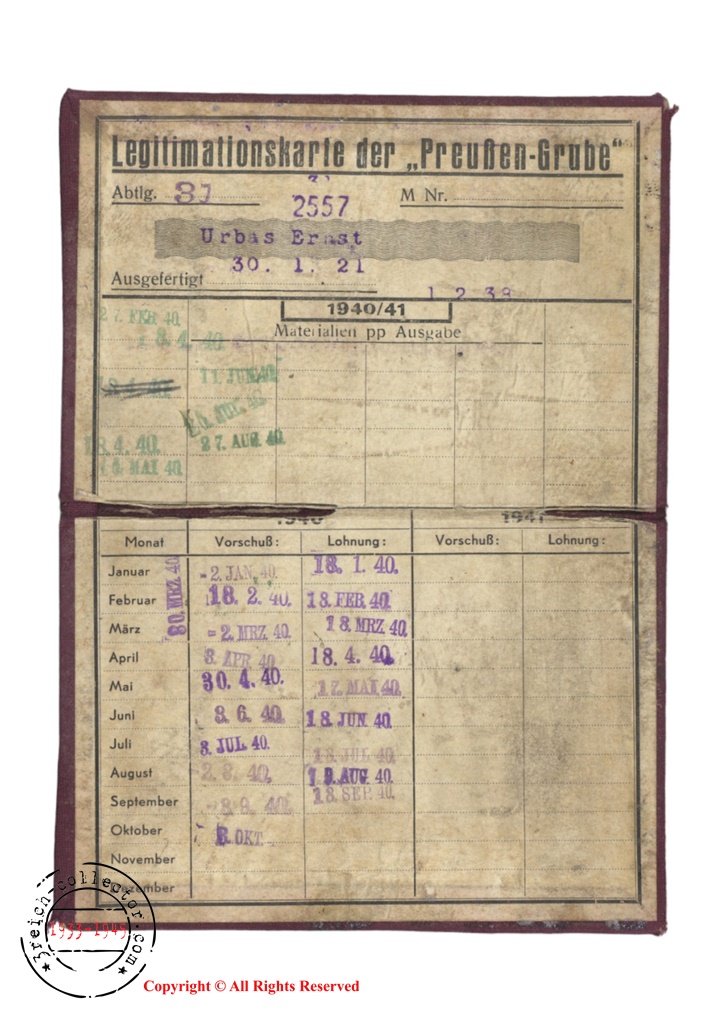 Legitimationskarte der „Preußen-Grube“
Abtlg. 31 2557 M Nr.
Urbas Ernst
30. 1. 21
Ausgefertigt 1 2 39
1940/41
Materialien pp Ausgabe
27. FEB 40.
8. 4. 40
11. JUN 40.
40.
18. 4. 40. 27. AUG. 40.
MAI 40.
1940 1941
Monat Vorschuß: Lohnung: Vorschuß: Lohnung:
30. MRZ 40
Januar - 2. JAN. 40. 18. 1. 40.
Februar 18. 2. 40. 18. FEB. 40.
März - 2. MRZ 40. 18. MRZ 40.
April 3. APR 40. 18. 4. 40.
Mai 30. 4. 40. 17. MAI 40.
Juni 3. 6. 40. 18. JUN 40.
Juli 3. JUL 40. 18. JUL 40.
August 2. 8. 40. 19. AUG. 40.
September 40. 18. SEP. 40.
Oktober 3. OKT.
November
Dezember
3reich-collector.com
1933-1945
Copyright © All Rights Reserved